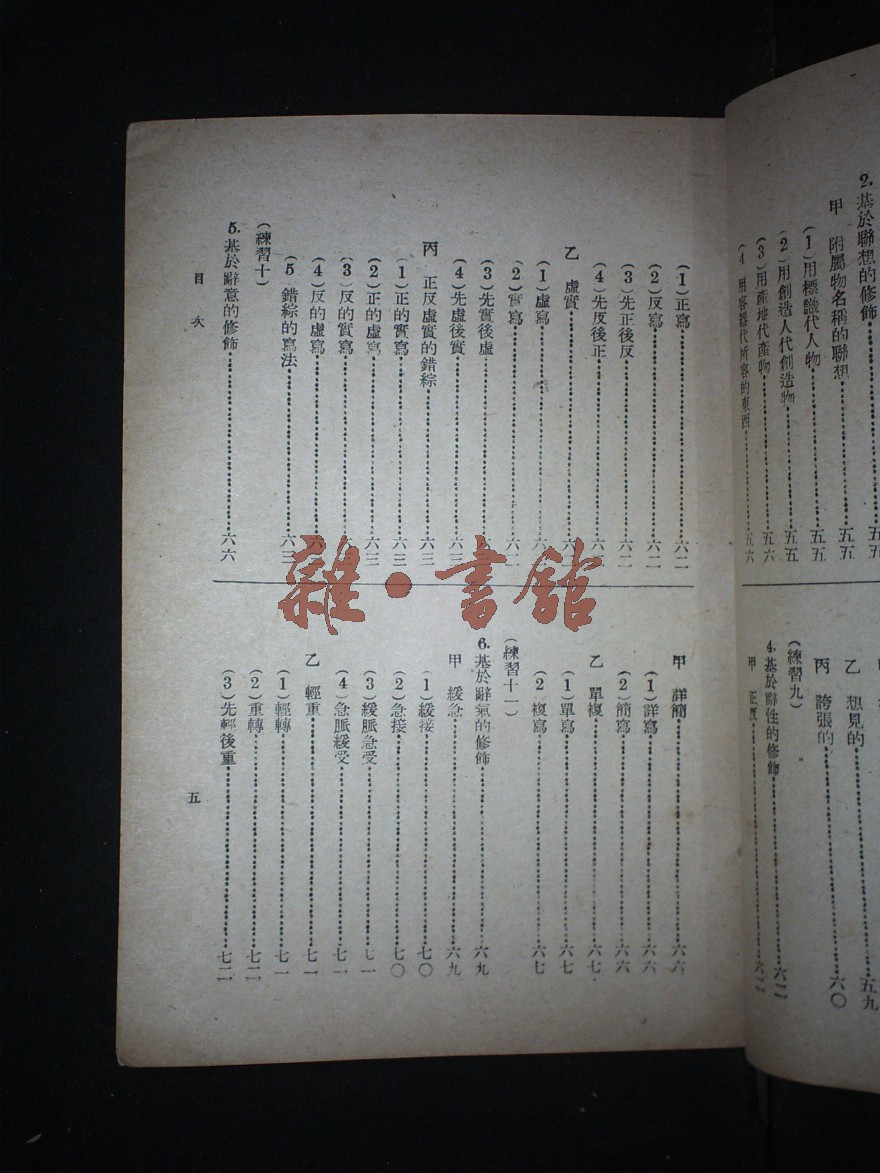 2. 基於聯想的修飾……五五
甲 附屬物名稱的聯想……五五
(1)用標識代人物……五五
(2)用創造人代創造物……五五
(3)用產地代產物……五六
(4)用容器代所容的東西……五六
乙 想見的……五九
丙 誇張的……六〇
(練習九)
4. 基於辭性的修飾……六二
甲 正反……六二
(1)正寫……六二
(2)反寫……六二
(3)先正後反……六二
(4)先反後正……六二
乙 虛實……六
(1)虛寫……六
(2)實寫……六
(3)先實後虛……六三
(4)先虛後實……六三
丙 正反虛實的錯綜……六三
(1)正的實寫……六三
(2)正的虛寫……六三
(3)反的實寫……六
(4)反的虛寫……六
(5)錯綜的寫法……六三
(練習十)
5. 基於辭意的修飾……六六
甲 詳簡……六六
(1)詳寫……六六
(2)簡寫……六六
乙 單複……六七
(1)單寫……六七
(2)複寫……六七
(練習十一)
6. 基於辭氣的修飾……六九
甲 緩急……六九
(1)緩接……七〇
(2)急接……七〇
(3)緩脈急受……七一
(4)急脈緩受……七一
乙 輕重……七一
(1)輕轉……七一
(2)重轉……七二
(3)先輕後重……七二
目次
五
雜·書館